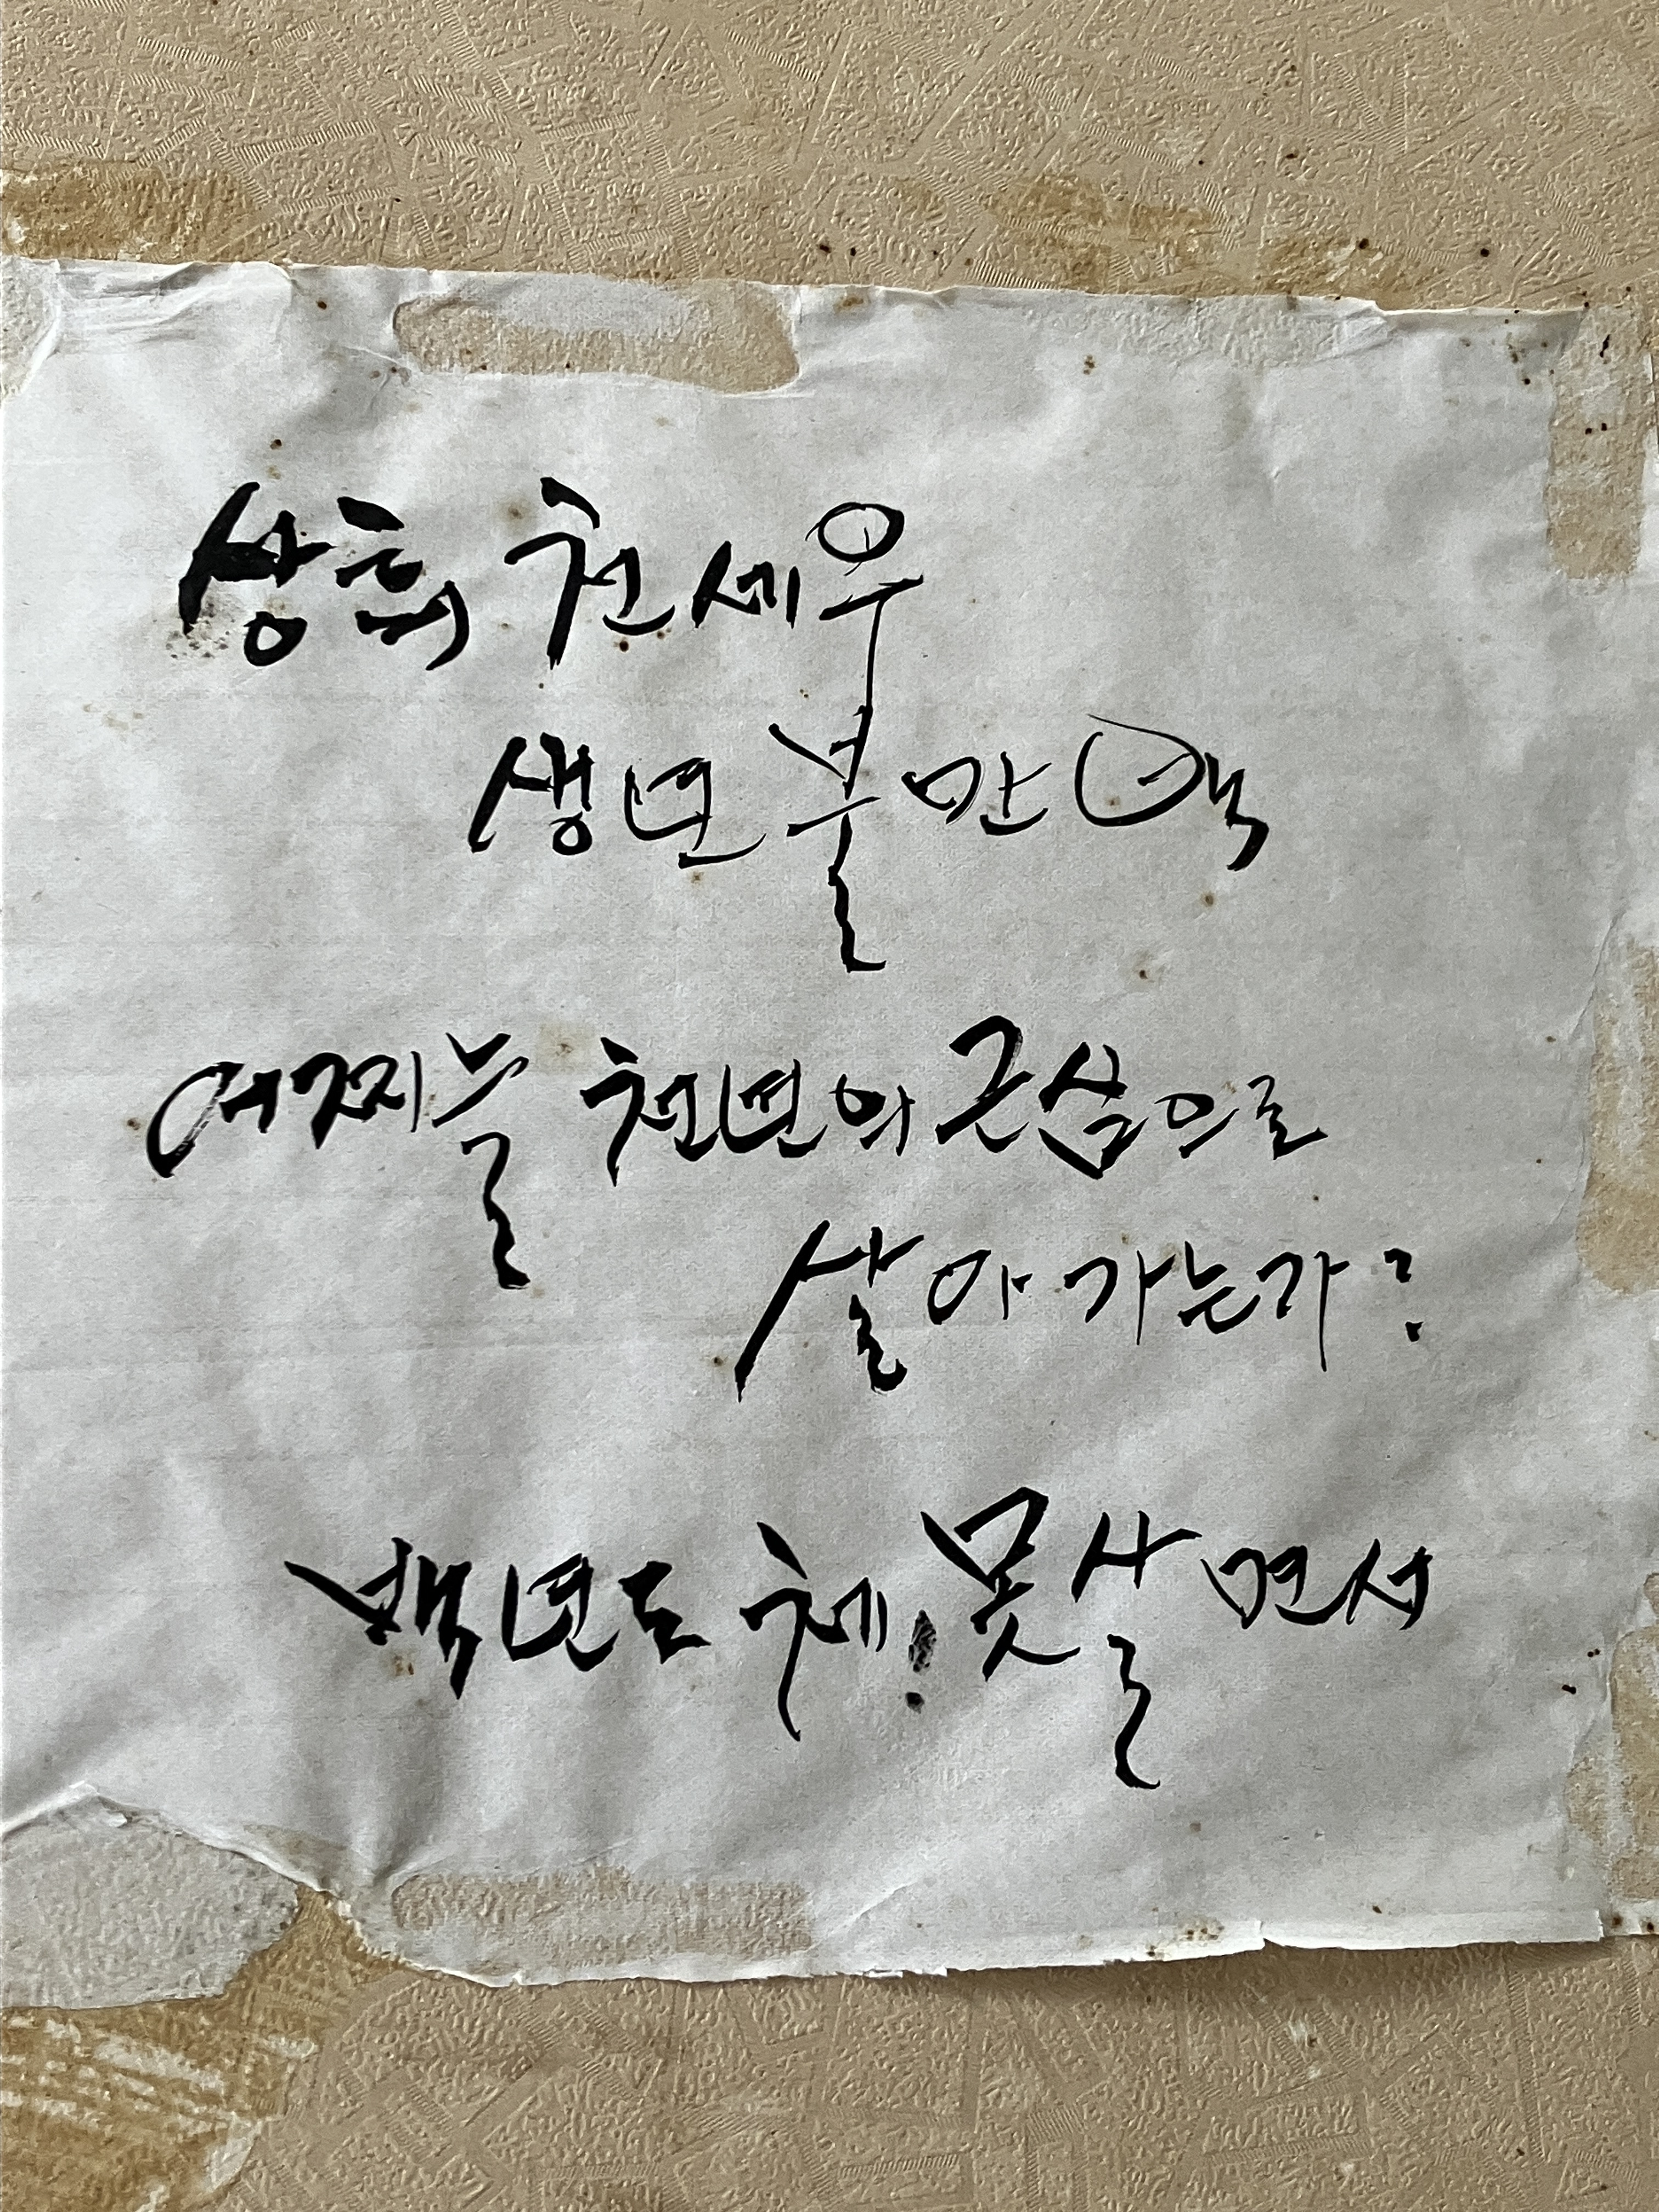 상회 천세우
생년 불만 백
어찌늘 천년의 근심으로
살아 가는가?
백년도 체! 못살면서